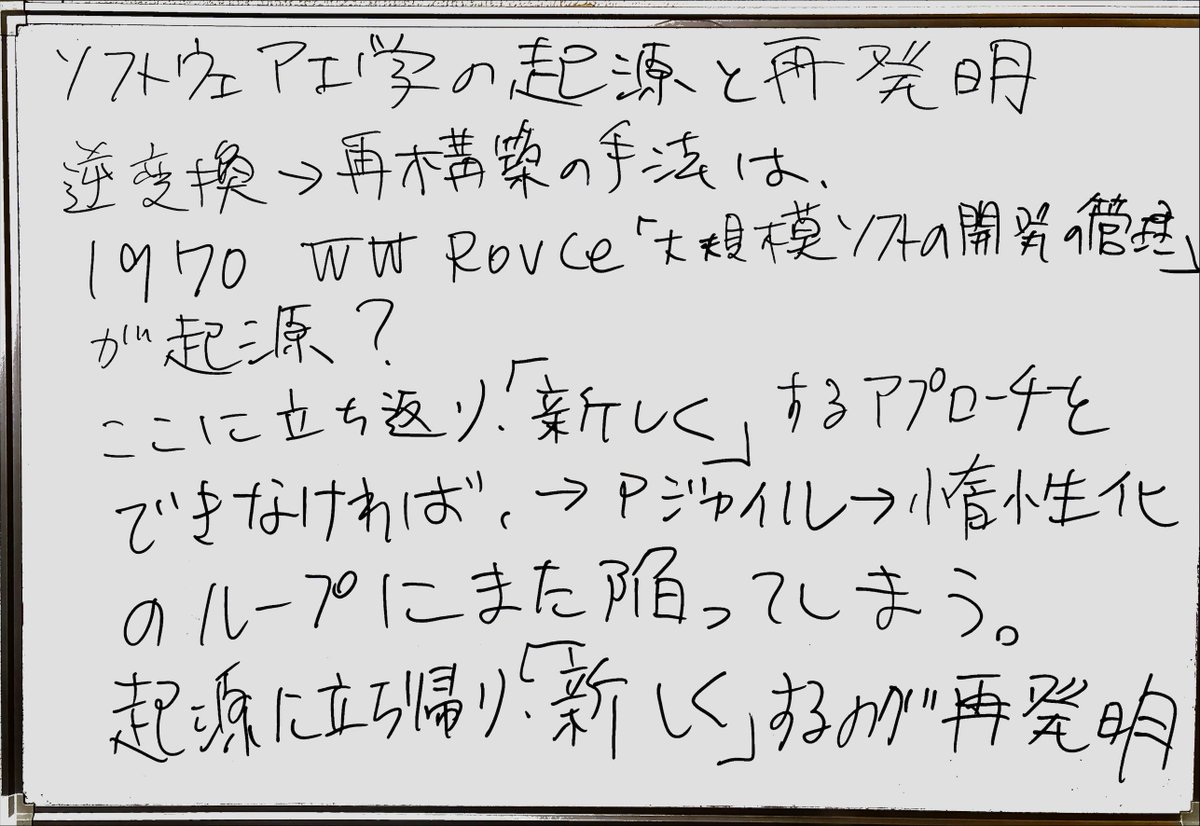 ソフトウェア工学の起源と再発明
逆変換→再構築の手法は、
1970 WW Royce「大規模ソフトの開発の管理」
が起源?
ここに立ち返り、「新しく」するアプローチを
できなければ、→アジャイル→惰性化
のループにまた陥ってしまう。
起源に立ち帰り、「新しく」するのが再発明